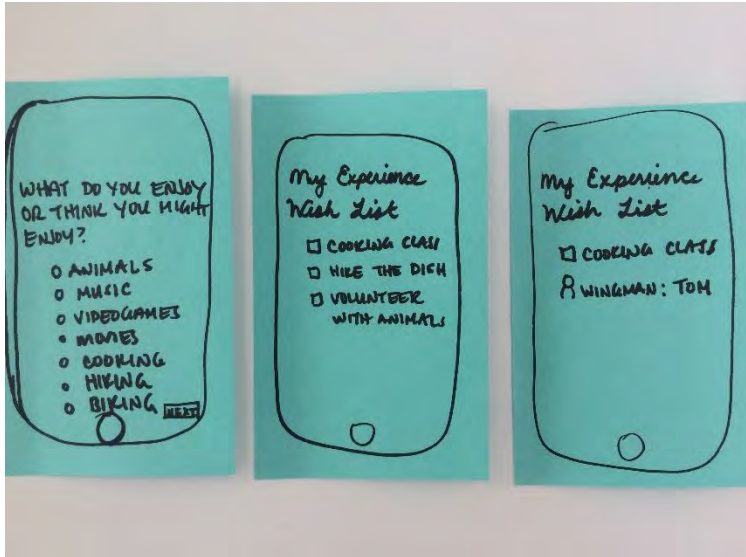 WHAT DO YOU ENJOY
OR THINK YOU MIGHT
ENJOY?
ANIMALS
MUSIC
VIDEOGAMES
MOVIES
COOKING
HIKING
BIKING NEXT
My Experience
Wish List
COOKING CLASS
HIKE THE DISH
VOLUNTEER
WITH ANIMALS
My Experience
Wish List
COOKING CLASS
WINGMAN: TOM